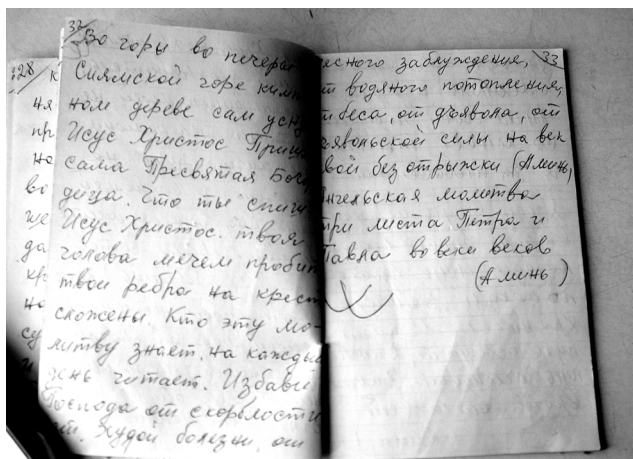 32
Во горы во печерах
Сиямской горе кипа
ном дереве сам усну
Исус Христос Прише
сама Пресвятая Бого
дица. Что ты спиш
Исус Христос. твоя
голова мечем пробит
твои ребра на крест
сложены. Кто эту мо-
литву знает, на каждый
день читает. Избави
Господа от скорблости
от. Худой болезни, от
33
есного заблуждения,
т водяного потопления,
т беса, от дъявола, от
авольской силы на век
вой без отрыжски (Аминь)
нгельская молитва
три листа. Петра и
Павла во веки веков
(Аминь)
328
к
ня
пр
на
во
же
да
кр
на
су